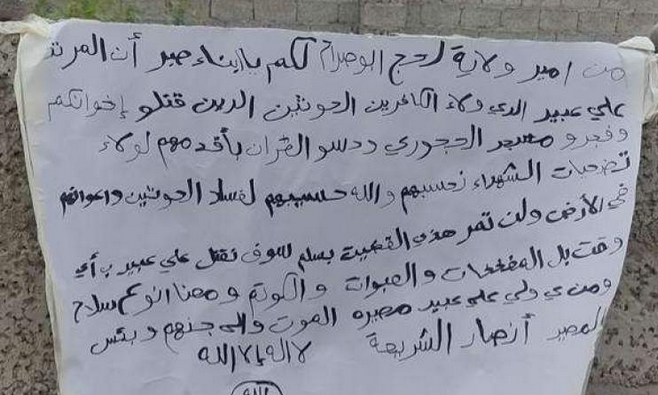 من امير ولاية لحج ابو صرام لكم يا ابناء صبر أن المرتد
علي عبيد الدي ولاء الكافرين الحوثين الدين قتلو إخوانكم
وفجرو مسجد الحجوري ودسو القران بأقدمهم لولاء
تضحيات الشهداء نحسبهم والله حسيبهم لفساد الحوثين واعوانهم
في الأرض ولن تمر هذي القضيت بسلم لسوف نقتل علي عبيد بأي
وقت بل المفخخات والعبوات والكوتم ومعنا انوع سلاح
ومن ي ولي علي عبيد مصيره الموت والى جنهم وبئس
المصير أنصار الشريعة لا اله إلا الله
الله